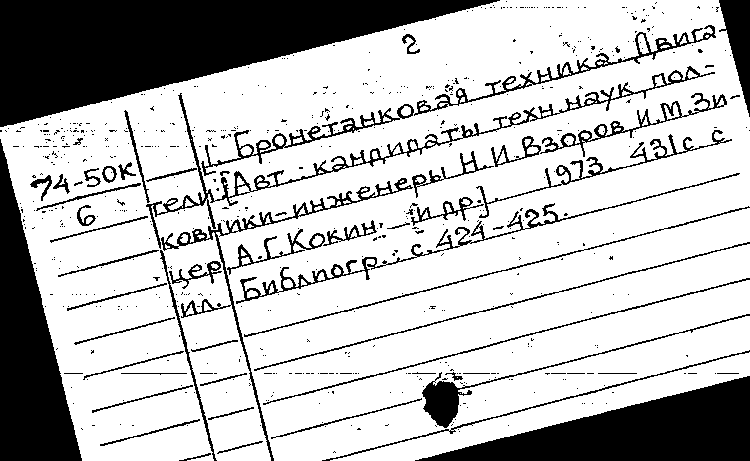 2
1. Бронетанковая техника: Двига-
74-50к
6
тели. [Авт.: кандидаты техн. наук, пол-
ковники-инженеры Н.И. Взоров, И.М. Зи-
цер, А.Г. Кокин. [и др.]. 1973. 431с с
ил. Библиогр.: с. 424-425.